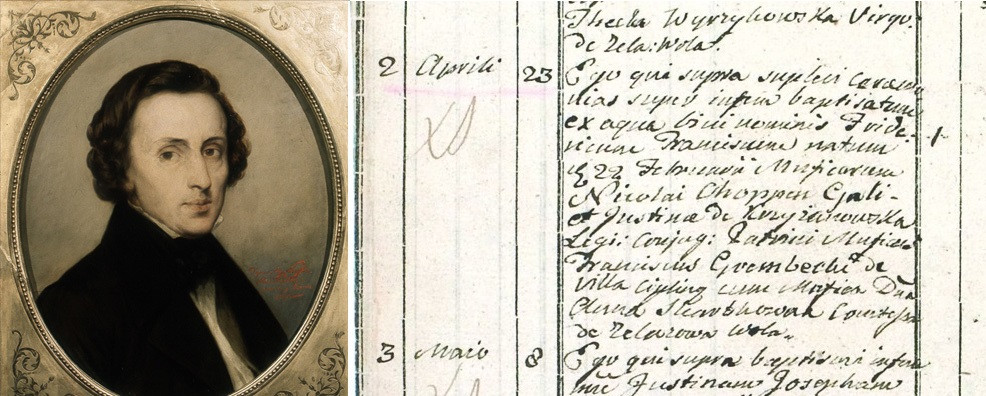 Thecla Wyrzykowska Virgo.
de Zela: Wola.
2 Aprili 23 Ego qui supra suplevi ceremo
nias super infan baptisatum
ex aqua bini nominis Fride-
ricum Franciscum natum
22 Februarii Magnificorum
Nicolai Choppen Gali-
et Justina de Krzyżanowska
Legi: Conjug: Patrini Magnificus
Franciscus Grembecki de
Villa Cipliny cum Magnifica Dna
Anna Skarbkowa Comitissa
de Zelazowa Wola.
3 Maio 8 Ego qui supra baptisavi infan
Justinam Josepham